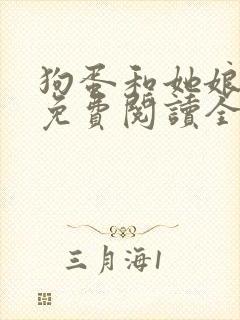 狗蛋和她娘
免費閱讀全
三月海1